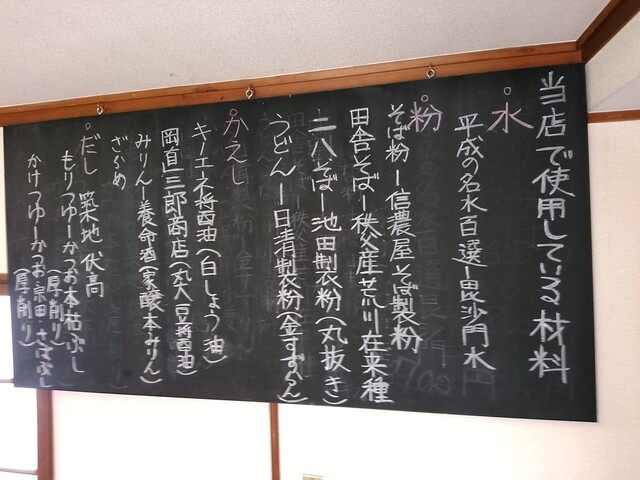 当店で使用している材料
○水
平成の名水百選ー毘沙門水
○粉
そば粉ー信濃屋そば製粉
田舎そばー秩父産荒川在来種
二八そばー池田製粉(丸抜き)
うどんー日清製粉(金すずらん)
○かえし
キノエネ醤油(白しょう油)
岡直三郎商店(丸大豆醤油)
みりんー養命酒(家醸本みりん)
ざらめ
○だし 築地伏高
もりつゆーかつお本枯ぶし
(厚削り)
かけつゆーかつお宗田・さばぶし
(厚削り)